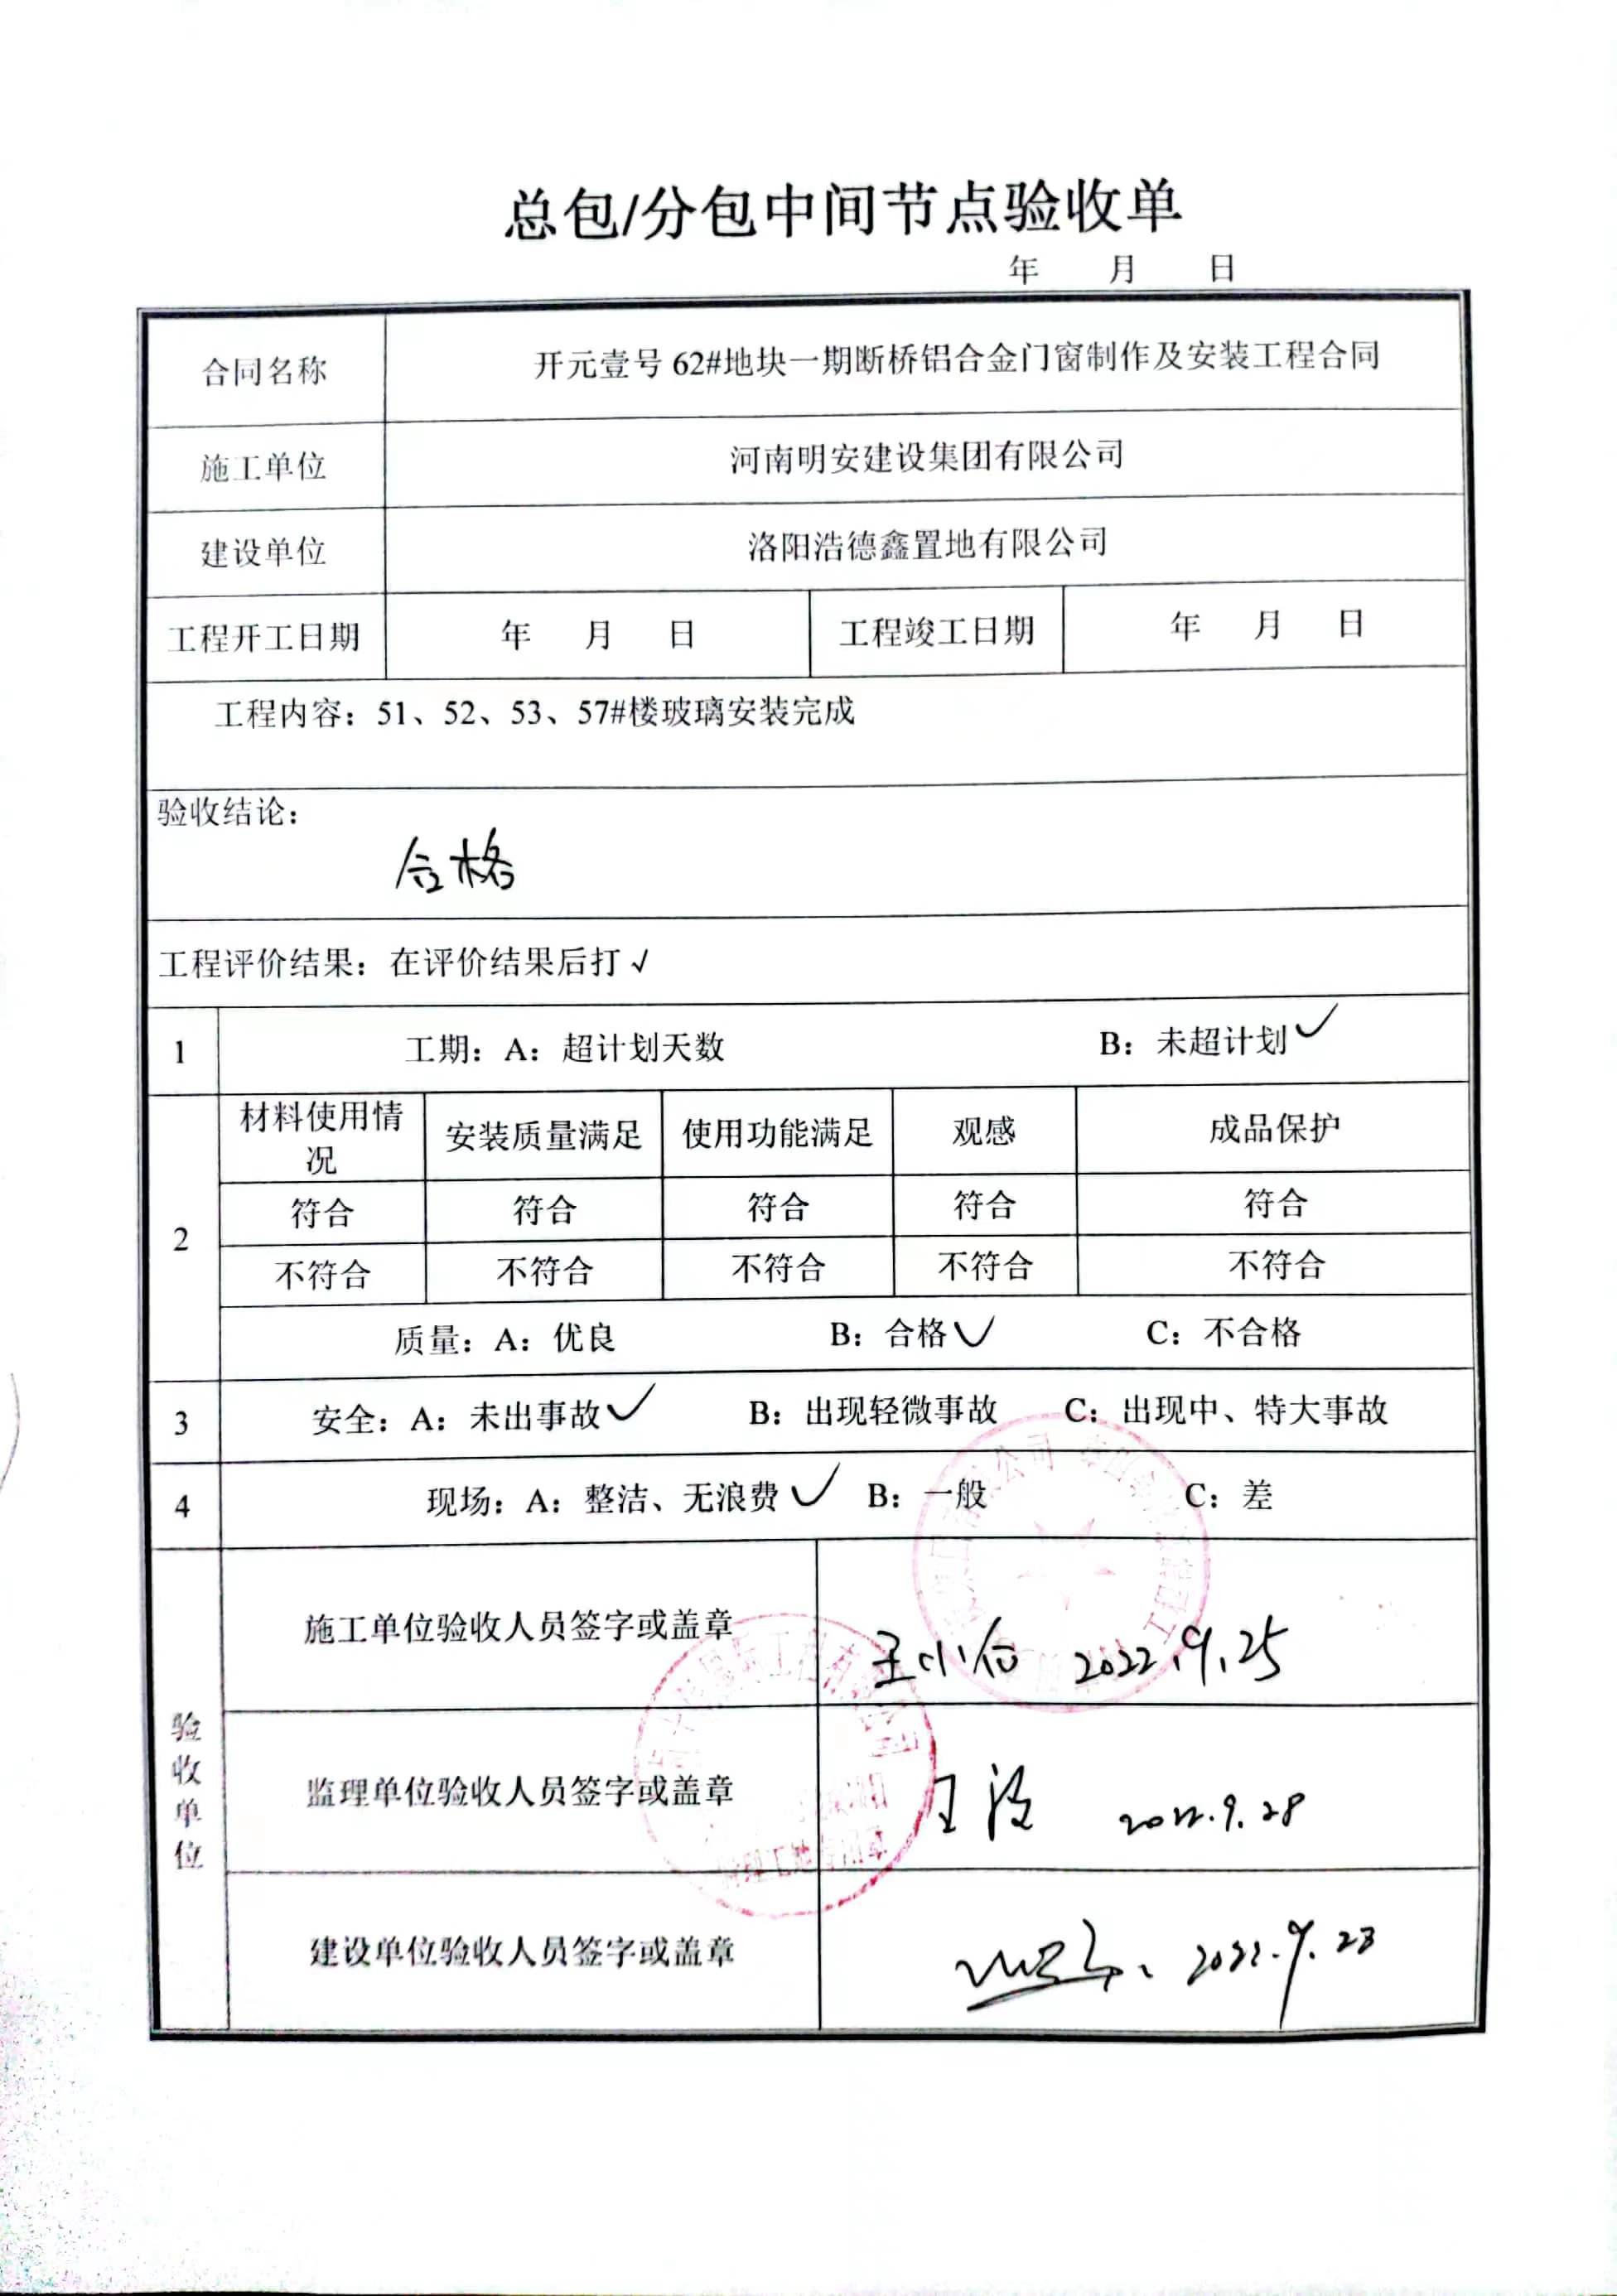 总包/分包中间节点验收单
年 月 日
合同名称 开元壹号 62#地块一期断桥铝合金门窗制作及安装工程合同
施工单位 河南明安建设集团有限公司
建设单位 洛阳浩德鑫置地有限公司
工程开工日期 年 月 日 工程竣工日期 年 月 日
工程内容：51、52、53、57#楼玻璃安装完成
验收结论：
合格
工程评价结果：在评价结果后打√
1 工期：A：超计划天数 B：未超计划✓
材料使用情况 安装质量满足 使用功能满足 观感 成品保护
2
符合 符合 符合 符合 符合
不符合 不符合 不符合 不符合 不符合
质量：A：优良 B：合格✓ C：不合格
3 安全：A：未出事故✓ B：出现轻微事故 C：出现中、特大事故
4 现场：A：整洁、无浪费✓ B：一般 C：差
验收单位
施工单位验收人员签字或盖章 王小 2022.9.25
监理单位验收人员签字或盖章 王 2022.9.28
建设单位验收人员签字或盖章 2022.9.28